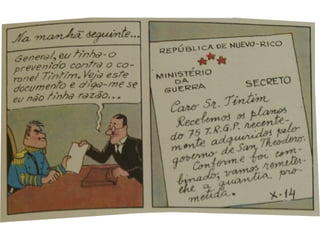 Na manhã seguinte...
General, eu tinha-o
prevenido contra o co-
ronel Tintim. Veja este
documento e diga-me se
eu não tinha razão...
REPÚBLICA DE NUEVO-RICO
MINISTÉRIO
DA
GUERRA
SECRETO
Caro Sr. Tintim
Recebemos os planos
do 75 T.R.G.P. recente-
mente adquiridos pelo
governo de San Theodoro.
Conforme foi com-
binado, vamos remeter-
-lhe a quantia pro-
metida.
X-14